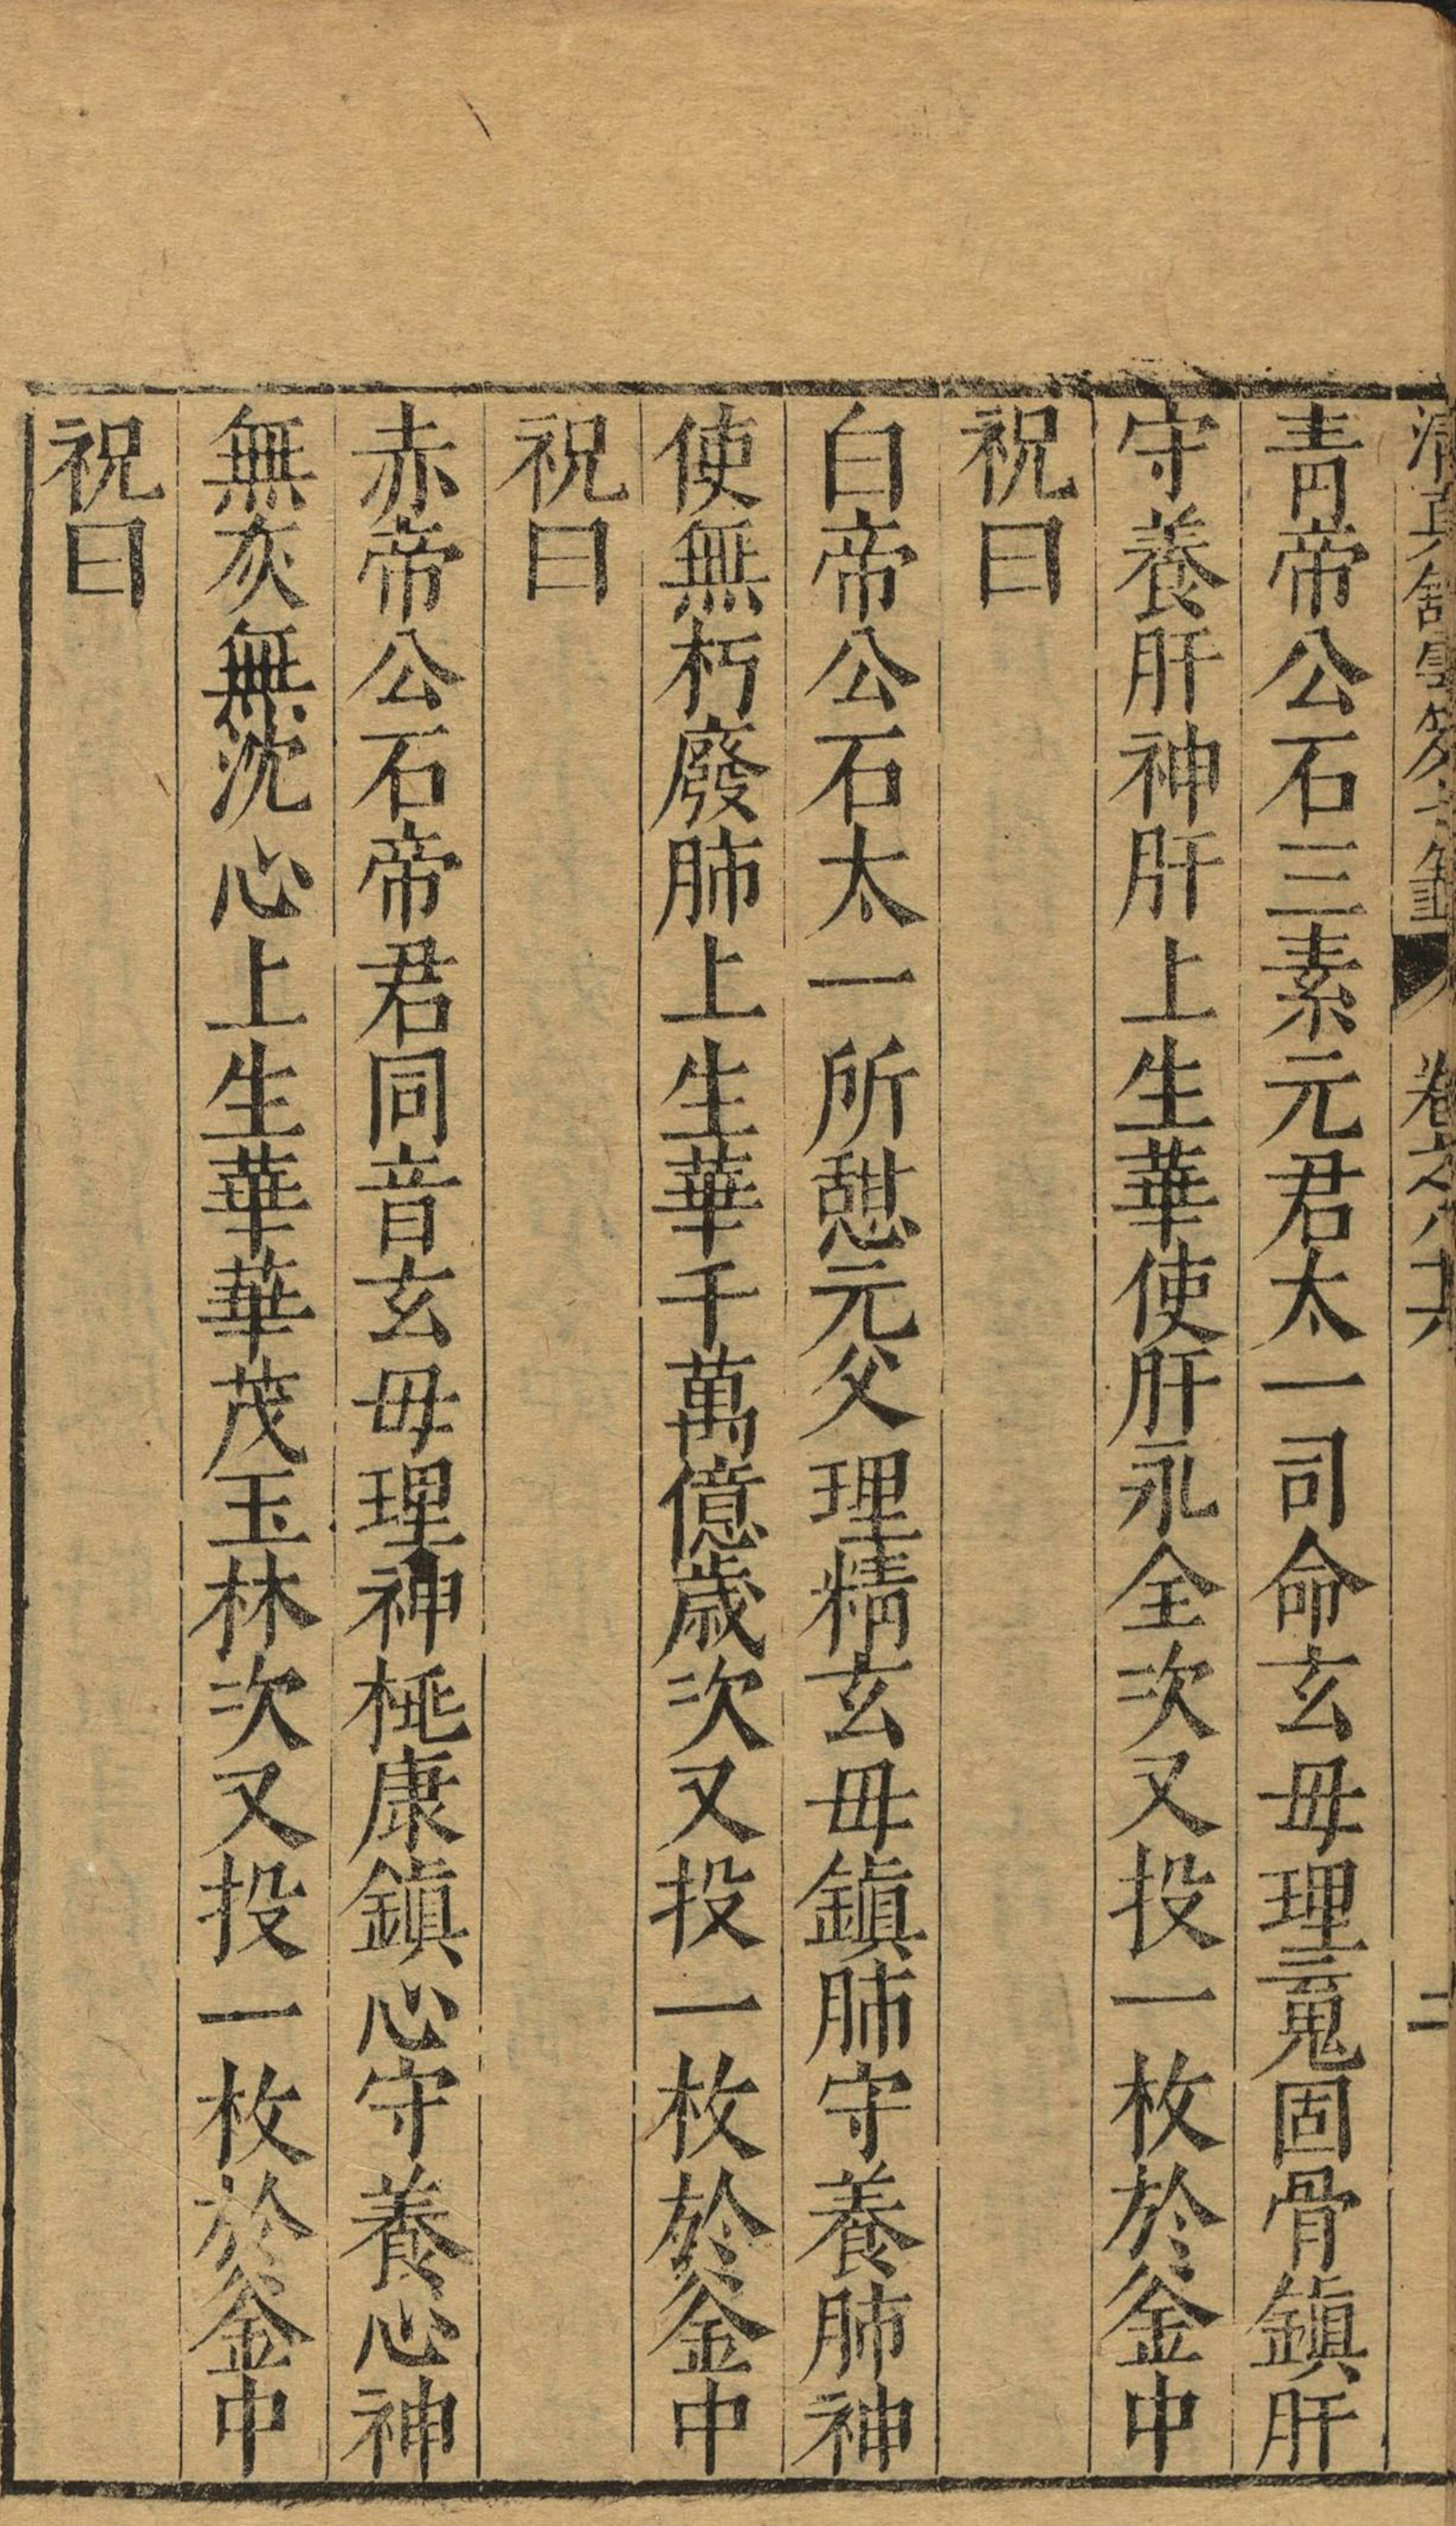 清真舘雲笈七籤 卷之八十六 二
青帝公石三素元君太一司命玄母理䰟固骨鎮肝
守養肝神肝上生華使肝永全次又投一枚於釜中
祝曰
白帝公石太一所憇元父理精玄毋鎮肺守養肺神
使無朽廢肺上生華千萬億歲次又投一枚於釜中
祝曰
赤帝公石帝君同音玄毋理神桃康鎮心守養心神
無灰無沈心上生華華茂玉林次又投一枚於釜中
祝曰